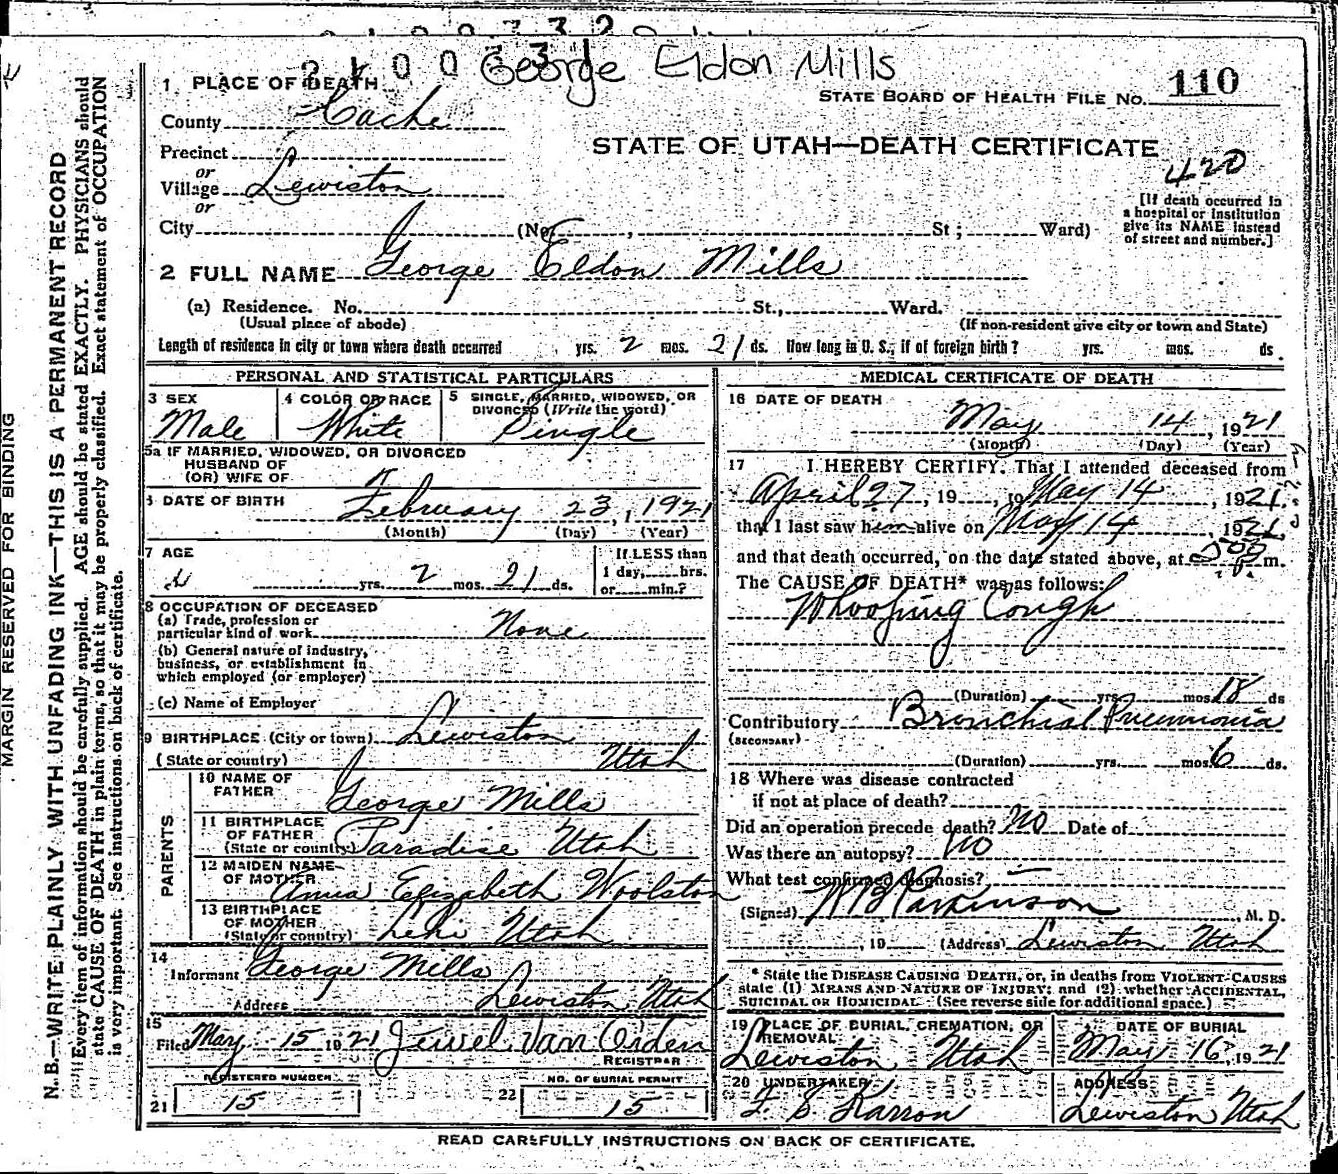 2 1 0 0 3 3 1
George Eldon Mills
STATE BOARD OF HEALTH FILE No. 110
1 PLACE OF DEATH
County Cache
STATE OF UTAH—DEATH CERTIFICATE
420
Precinct
or
Village Lewiston
or
City (No. , St; Ward)
[If death occurred in
a hospital or institution
give its NAME instead
of street and number.]
2 FULL NAME George Eldon Mills
(a) Residence. No. St., Ward.
(Usual place of abode) (If non-resident give city or town and State)
Length of residence in city or town where death occurred yrs. 2 mos. 21 ds. How long in U. S., if of foreign birth? yrs. mos. ds.
PERSONAL AND STATISTICAL PARTICULARS
3 SEX
Male
4 COLOR OR RACE
White
5 SINGLE, MARRIED, WIDOWED, OR
DIVORCED (Write the word)
Single
5a IF MARRIED, WIDOWED, OR DIVORCED
HUSBAND OF
(OR) WIFE OF
6 DATE OF BIRTH February 23, 1921
(Month) (Day) (Year)
7 AGE
yrs. 2 mos. 21 ds.
If LESS than
1 day, hrs.
or min.?
8 OCCUPATION OF DECEASED
(a) Trade, profession or
particular kind of work None
(b) General nature of industry,
business, or establishment in
which employed (or employer)
(c) Name of Employer
9 BIRTHPLACE (City or town) Lewiston
(State or country) Utah
PARENTS
10 NAME OF
FATHER George Mills
11 BIRTHPLACE
OF FATHER
(State or country) Paradise Utah
12 MAIDEN NAME
OF MOTHER Anna Elizabeth Woolston
13 BIRTHPLACE
OF MOTHER
(State or country) Lehi Utah
14
Informant George Mills
Address Lewiston Utah
15
Filed May 15 1921 Jewel Van Orden
REGISTRAR
REGISTERED NUMBER
21 15
NO. OF BURIAL PERMIT
22 15
MEDICAL CERTIFICATE OF DEATH
16 DATE OF DEATH
May 14, 1921
(Month) (Day) (Year)
17 I HEREBY CERTIFY, That I attended deceased from
April 27, 19 , to May 14, 1921
that I last saw him alive on May 14, 1921,
and that death occurred, on the date stated above, at m.
The CAUSE OF DEATH* was as follows:
Whooping Cough
(Duration) yrs. mos. 18 ds
Contributory Bronchial Pneumonia
(SECONDARY)
(Duration) yrs. mos. 6 ds.
18 Where was disease contracted
if not at place of death?
Did an operation precede death? No Date of
Was there an autopsy? No
What test confirmed diagnosis? —
(Signed) W B Parkinson, M. D.
, 19 (Address) Lewiston Utah
* State the DISEASE CAUSING DEATH, or, in deaths from VIOLENT CAUSES
state (1) MEANS AND NATURE OF INJURY; and (2) whether ACCIDENTAL,
SUICIDAL OR HOMICIDAL. (See reverse side for additional space.)
19 PLACE OF BURIAL, CREMATION, OR
REMOVAL
Lewiston Utah
DATE OF BURIAL
May 16, 1921
20 UNDERTAKER
Karron
ADDRESS
Lewiston Utah
READ CAREFULLY INSTRUCTIONS ON BACK OF CERTIFICATE.
MARGIN RESERVED FOR BINDING
N. B.—WRITE PLAINLY WITH UNFADING INK—THIS IS A PERMANENT RECORD
Every item of information should be carefully supplied. AGE should be stated EXACTLY. PHYSICIANS should
state CAUSE OF DEATH in plain terms, so that it may be properly classified. Exact statement of OCCUPATION
is very important. See instructions on back of certificate.